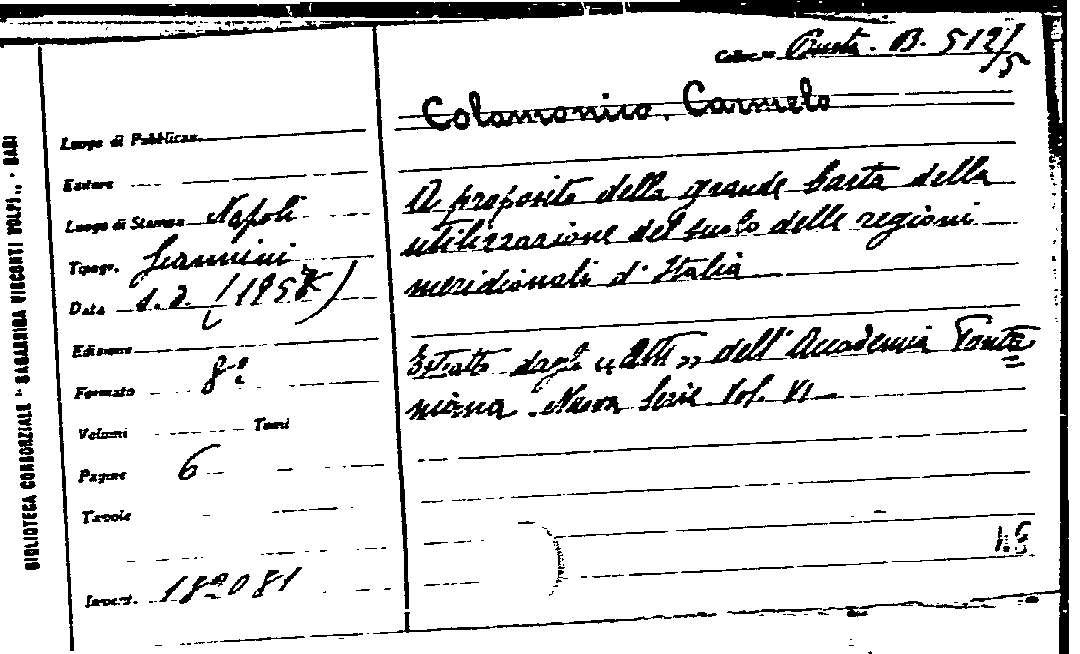 BIBLIOTECA CONSORZIALE "SAGARRIGA VISCONTI VOLPI" - BARI
Colloc.ne Busta. B. 512/5
Colamonico, Carmelo
Luogo di Pubblicaz.
Editore
Luogo di Stampa Napoli
Tipogr. Giannini
Data s. d. (1957)
Edizione
Formato 8º
Volumi Tomi
Pagine 6
Tavole
Invent. 182081
A proposito della grande Carta della
utilizzazione del suolo delle regioni
meridionali d'Italia
Estratto dagli "Atti" dell'Accademia Ponta=
niana. Nuova Serie Vol. VI